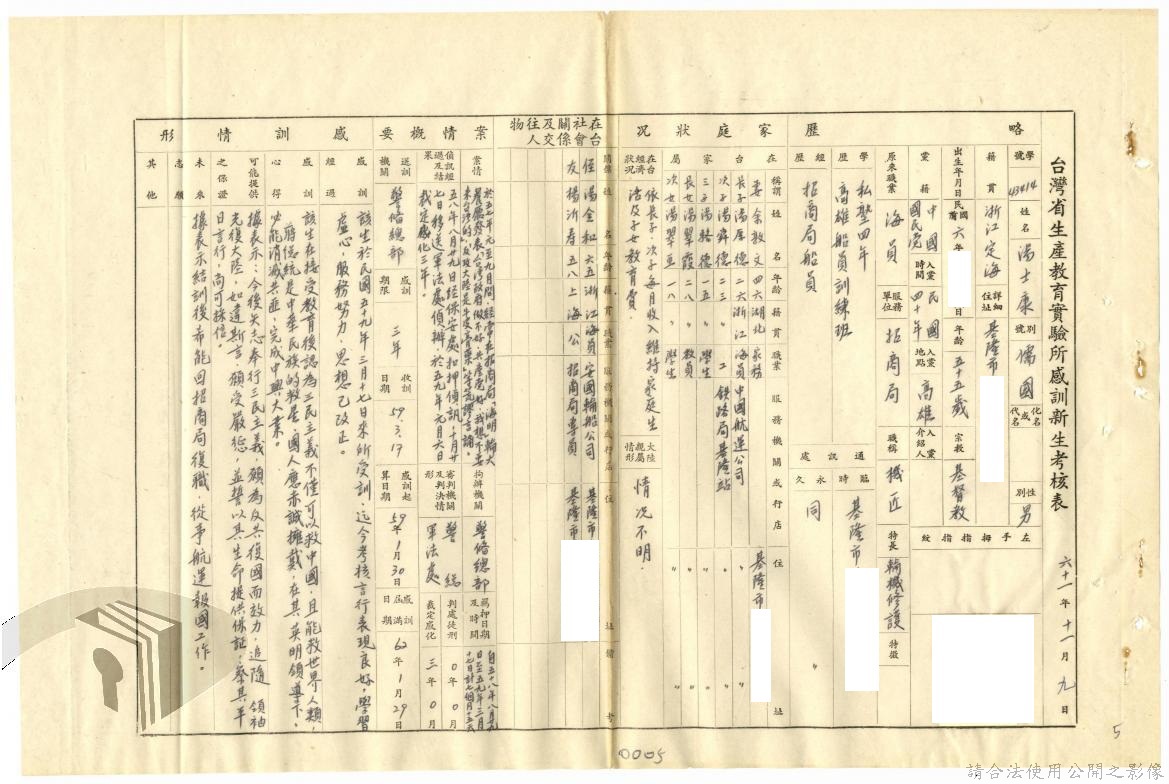 台灣省生產教育實驗所感訓新生考核表
六十一年十一月九日
略歷
學號 43414
姓名 湯士康
別號 儒國
化名或代名
性別 男
左手拇指指紋
籍貫 浙江定海
詳細住址 基隆市
出生年月日 民國前 六年
年齡 五十五歲
宗教 基督教
黨籍 中國國民黨
入黨時間 民國四十年
入黨地點 高雄
入黨介紹人
原來職業 海員
服務單位 招商局
職稱 機匠
特長 輪機修護
特徵
學歷 私塾四年
高雄船員訓練班
經歷 招商局船員
通訊處
臨時 基隆市
永久 同 〃
家庭狀況
在台家屬
稱謂 姓名 年齡 籍貫 職業 服務機關或行店 住址
妻 余敦文 四六 湖北 家務 基隆市
長子 湯厚德 二六 浙江 海員 中國航運公司 〃
次子 湯舜德 二三 〃 工 鐵路局基隆站 〃
三子 湯駱德 一五 〃 學生 〃
長女 湯翠霞 二八 〃 教員 〃
次女 湯翠亞 一八 〃 學生 〃
在台經濟狀況 依長子、次子每月收入維持家庭生活及子女教育費。
大陸親屬情形 情況不明.
在台社會關係及交往人物
關係 姓名 年齡 籍貫 職業 服務機關或行店 住址 備考
侄 湯金和 六五 浙江 海員 安國輪船公司 基隆市
友 楊沂春 五八 上海 公 招商局專員 基隆市
案情概要
案情 於五七年元至九月間、經常在招商局「海明」輪大餐廳發表「台灣政府做不好、共產黨好、我想不要來台灣的」「反攻大陸是牛皮膏藥」等荒謬言論。
偵訊經過及結果 五八年八月廿九日經保安處扣押偵訊、十月廿七日移送軍法處偵辦於五九年元月六日裁定感化三年。
拘辦機關 警備總部
羈押日期及時間 自五十八年八月廿九日至五九年三月十七日計七個月十五天
審判機關及判決情形 警總軍法處
判處徒刑 0年0月
裁定感化 三年0月
送訓機關 警備總部
感訓期限 三年
收訓日期 59.3.17
感訓起算日期 59年1月30日
感訓屆滿日期 62年1月29日
感訓情形
感訓經過 該生於民國五十九年三月十七日來所受訓、迄今考核言行表現良好、學習虛心、服務努力、思想已改正。
感訓心得 該生在接受教育後認為三民主義不僅可以救中國、且能救世界人類、 蔣總統是中華民族的救星、國人應赤誠擁戴、在其英明領導下、必能消滅共匪、完成中興大業。
可能提供之保證 據表示:今後矢志奉行三民主義、願為反共復國而效力、追隨 領袖光復大陸、如違斯言、願受嚴懲、並誓以其生命提供保証、察其平日言行、尚可採信。
未來志願 據表示結訓後希能回招商局復職、從事航運報國工作。
其他
0005
5
請合法使用公開之影像